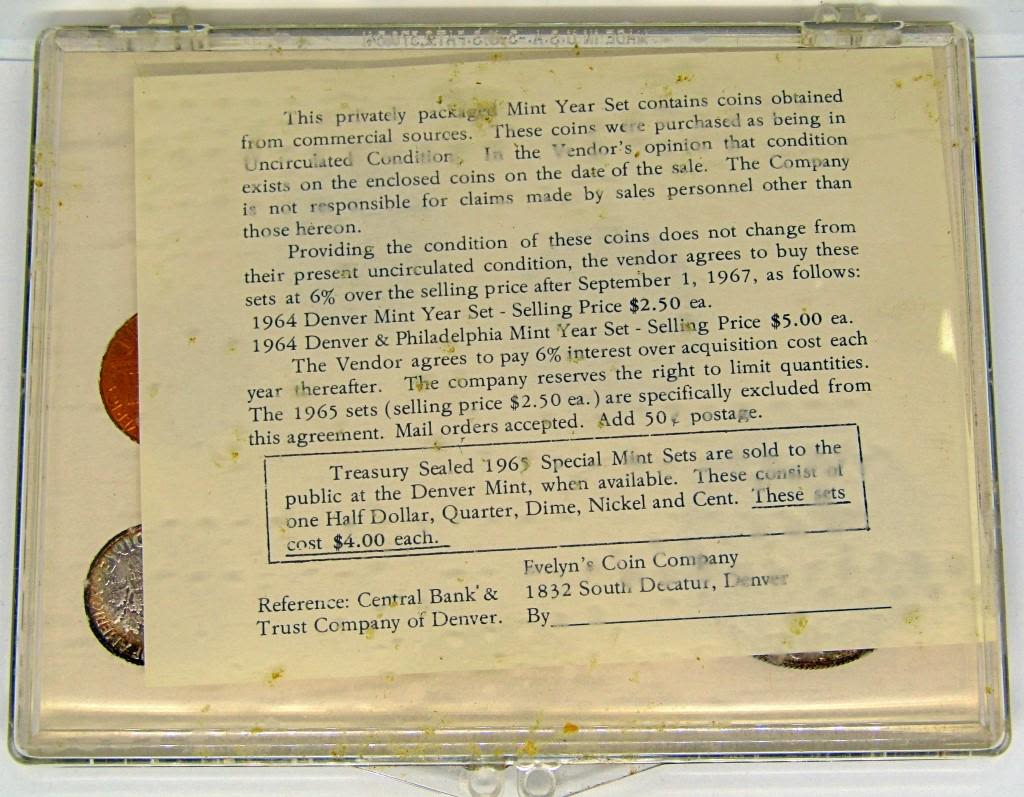 This privately packaged Mint Year Set contains coins obtained
from commercial sources. These coins were purchased as being in
Uncirculated Condition. In the Vendor's opinion that condition
exists on the enclosed coins on the date of the sale. The Company
is not responsible for claims made by sales personnel other than
those hereon.
Providing the condition of these coins does not change from
their present uncirculated condition, the vendor agrees to buy these
sets at 6% over the selling price after September 1, 1967, as follows:
1964 Denver Mint Year Set - Selling Price $2.50 ea.
1964 Denver & Philadelphia Mint Year Set - Selling Price $5.00 ea.
The Vendor agrees to pay 6% interest over acquisition cost each
year thereafter. The company reserves the right to limit quantities.
The 1965 sets (selling price $2.50 ea.) are specifically excluded from
this agreement. Mail orders accepted. Add 50¢ postage.
Treasury Sealed 1965 Special Mint Sets are sold to the
public at the Denver Mint, when available. These consist of
one Half Dollar, Quarter, Dime, Nickel and Cent. These sets
cost $4.00 each.
Evelyn's Coin Company
Reference: Central Bank & 1832 South Decatur, Denver
Trust Company of Denver. By